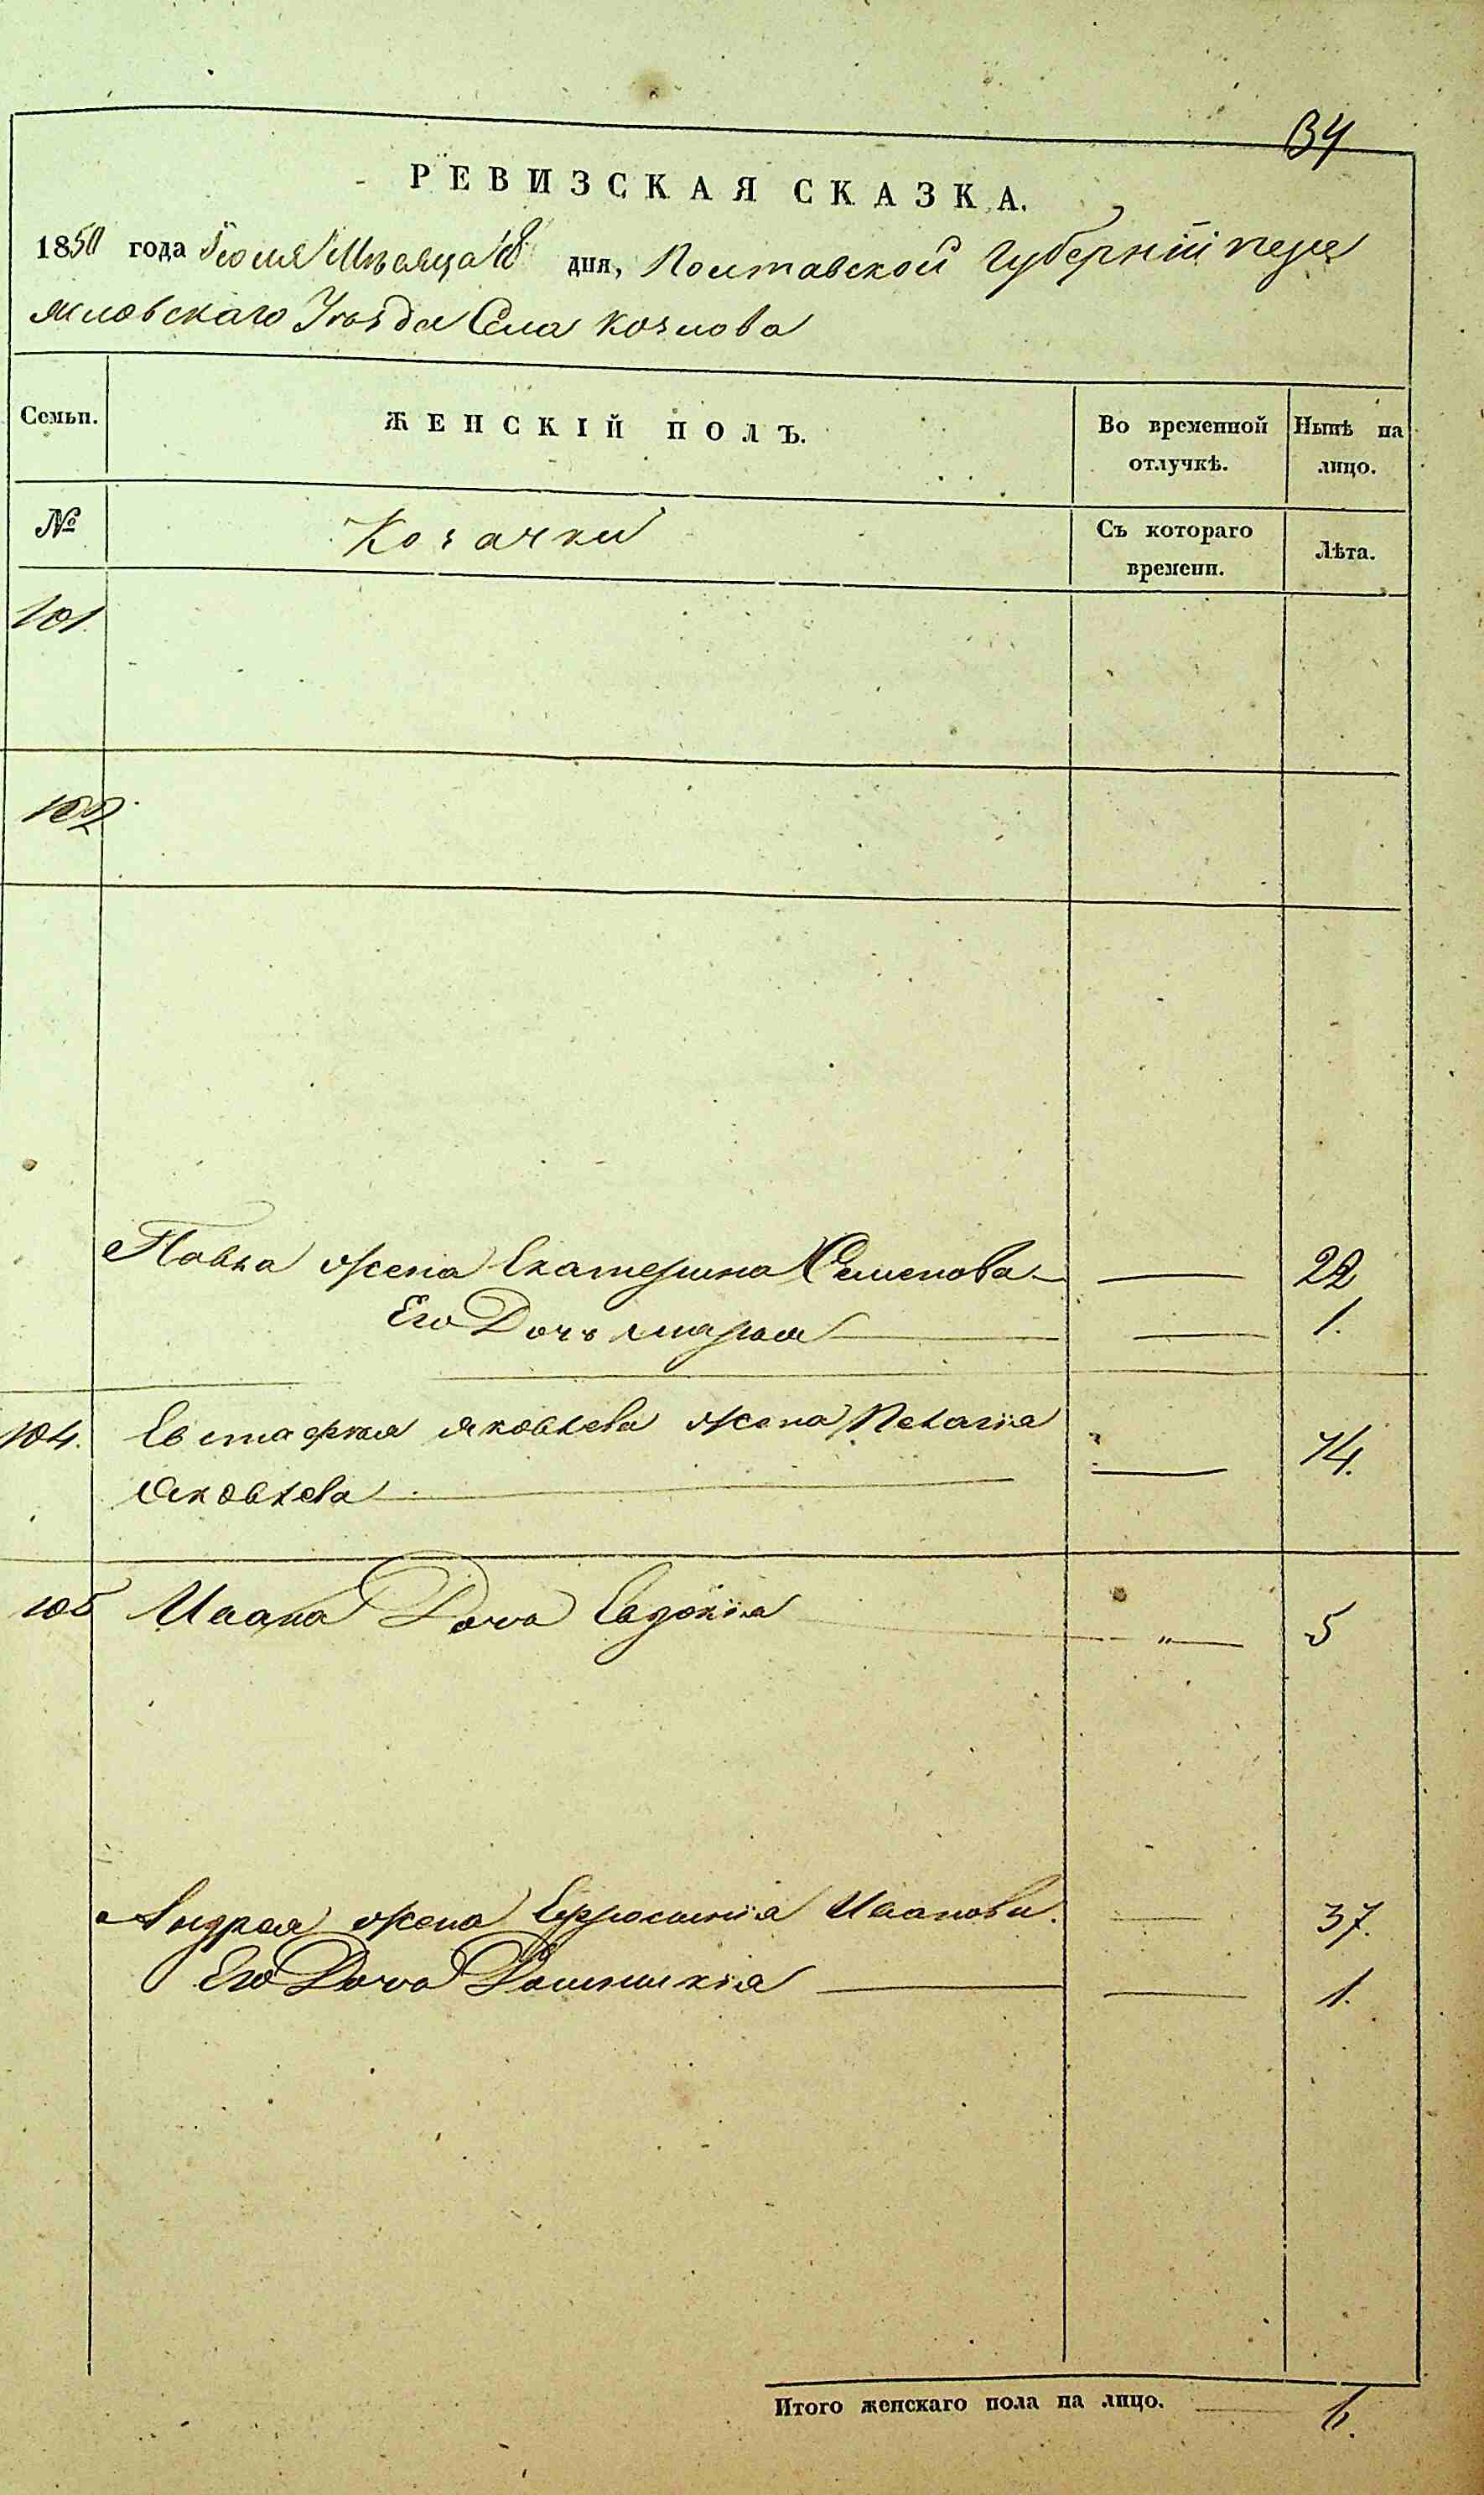 34
РЕВИЗСКАЯ СКАЗКА.
1850 года Іюля Мѣсяца 18 дня, Полтавской Губерніи пере
яславскаго Уѣзда Села козлова
Семьи. ЖЕНСКІЙ ПОЛЪ. Во временной отлучкѣ. Нынѣ на лицо.
№ Козачки Съ котораго времени. Лѣта.
101
102
Павла жена Екатерина Семенова 22
Его Дочь марья 1.
104. Евстафія яковлева жена Пелагія 74.
Яковлева
105 Ивана Дочь Евдокія " 5
Андрея жена Ефросинія Иванова. 37.
Его Дочь Домникія 1.
Итого женскаго пола на лицо. 6.